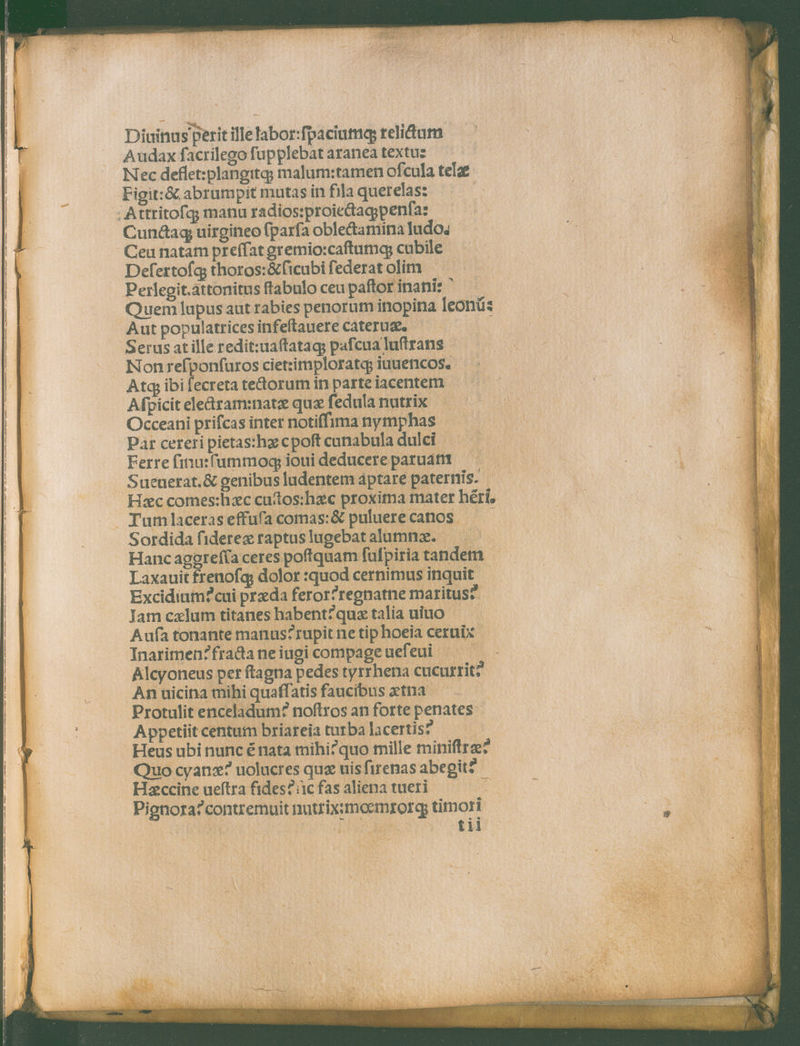 Diuinus perit ille labor:ſpaciumqꝫ relictum
Audax ſacrilego ſupplebat aranea textu:
Nec deflet:plangitqꝫ malum:tamen oſcula telæ
Figit:& abrumpit mutas in fila querelas:
Attritoſqꝫ manu radios:proiectaqꝫ penſa:
Cunctaqꝫ uirgineo ſparſa oblectamina ludo.
Ceu natam preſſat gremio:caſtumqꝫ cubile
Deſertoſqꝫ thoros:& ſicubi ſederat olim
Perlegit.attonitus ſtabulo ceu paſtor inani:
Quem lupus aut rabies penorum inopina leonū:
Aut populatrices infeſtauere cateruæ.
Serus at ille redit:uaſtataqꝫ paſcua luſtrans
Non reſponſuros ciet:imploratqꝫ iuuencos.
Atqꝫ ibi ſecreta tectorum in parte iacentem
Aſpicit electram:natæ quæ ſedula nutrix
Occeani priſcas inter notiſſima nymphas
Par cereri pietas:hæc poſt cunabula dulci
Ferre ſinu:ſummoqꝫ ioui deducere paruam
Sueuerat.& genibus ludentem aptare paternis.
Hæc comes:hæc cuſtos:hæc proxima mater héri.
Tum laceras effuſa comas:& puluere canos
Sordida ſidereæ raptus lugebat alumnæ.
Hanc aggreſſa ceres poſtquam ſuſpiria tandem
Laxauit frenoſqꝫ dolor :quod cernimus inquit
Excidium?cui præda feror?regnatne maritus?
Jam cælum titanes habent?quæ talia uiuo
Auſa tonante manus?rupit ne tiphoeia ceruix
Inarimen?fracta ne iugi compage ueſeui
Alcyoneus per ſtagna pedes tyrrhena cucurrit?
An uicina mihi quaſſatis faucibus ætna
Protulit enceladum? noſtros an forte penates
Appetiit centum briareia turba lacertis?
Heus ubi nunc é nata mihi?quo mille miniſtræ?
Quo cyanæ? uolucres quæ uis ſirenas abegit?
Hæccine ueſtra fides?ſic fas aliena tueri
Pignora?contremuit nutrix:mœmrorqꝫ timori
tii